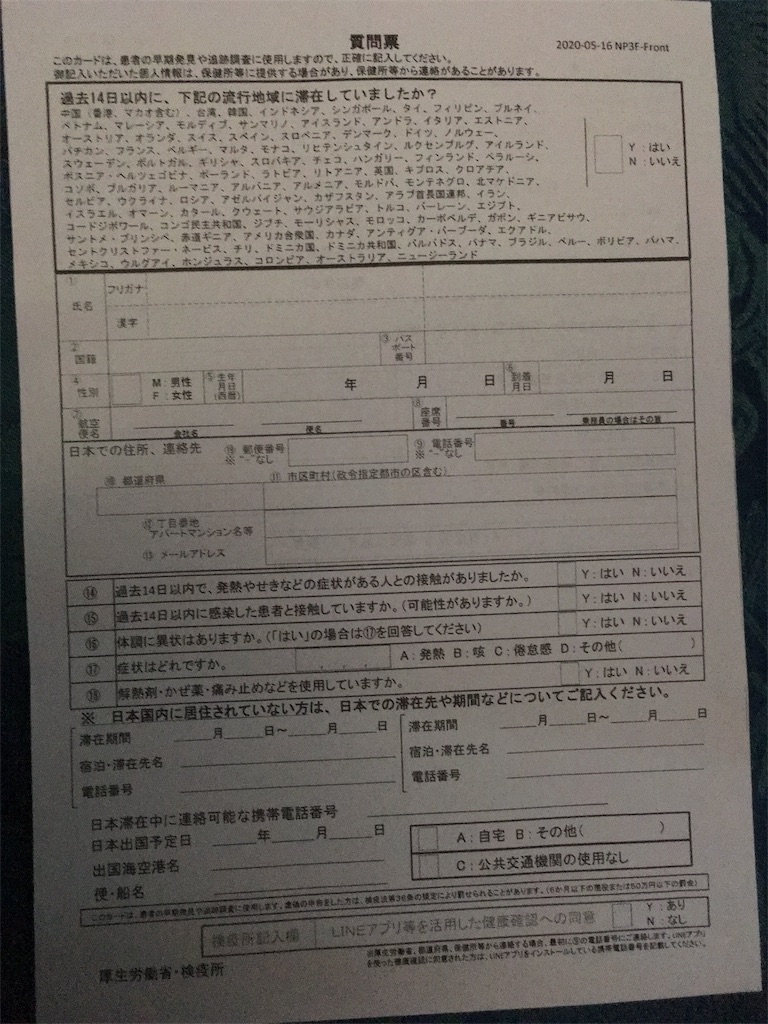 質問票
2020-05-16 NP3F-Front
このカードは、患者の早期発見や追跡調査に使用しますので、正確に記入してください。
御記入いただいた個人情報は、保健所等に提供する場合があり、保健所等から連絡があることがあります。
過去14日以内に、下記の流行地域に滞在していましたか？
中国（香港、マカオ含む）、台湾、韓国、インドネシア、シンガポール、タイ、フィリピン、ブルネイ、
ベトナム、マレーシア、モルディブ、サンマリノ、アイスランド、アンドラ、イタリア、エストニア、
オーストリア、オランダ、スイス、スペイン、スロベニア、デンマーク、ドイツ、ノルウェー、
バチカン、フランス、ベルギー、マルタ、モナコ、リヒテンシュタイン、ルクセンブルグ、アイルランド、
スウェーデン、ポルトガル、ギリシャ、スロバキア、チェコ、ハンガリー、フィンランド、ベラルーシ、
ボスニア・ヘルツェゴビナ、ポーランド、ラトビア、リトアニア、英国、キプロス、クロアチア、
コソボ、ブルガリア、ルーマニア、アルバニア、アルメニア、モルドバ、モンテネグロ、北マケドニア、
セルビア、ウクライナ、ロシア、アゼルバイジャン、カザフスタン、アラブ首長国連邦、イラン、
イスラエル、オマーン、カタール、クウェート、サウジアラビア、トルコ、バーレーン、エジプト、
コードジボワール、コンゴ民主共和国、ジブチ、モーリシャス、モロッコ、カーボベルデ、ガボン、ギニアビサウ、
サントメ・プリンシペ、赤道ギニア、アメリカ合衆国、カナダ、アンティグア・バーブーダ、エクアドル、
セントクリストファー・ネービス、チリ、ドミニカ国、ドミニカ共和国、バルバドス、パナマ、ブラジル、ペルー、ボリビア、バハマ、
メキシコ、ウルグアイ、ホンジュラス、コロンビア、オーストラリア、ニュージーランド
Y：はい
N：いいえ
① 氏名
フリガナ
漢字
② 国籍
③ パスポート番号
④ 性別
M：男性
F：女性
⑤ 生年月日（西暦）
年 月 日
⑥ 到着月日
月 日
⑦ 航空便名
会社名 便名
⑧ 座席番号
番号 乗務員の場合はその旨
日本での住所、連絡先
⑩ 郵便番号
※ “-”なし
⑨ 電話番号
※ “-”なし
都道府県
⑪ 市区町村（政令指定都市の区含む）
⑫ 丁目番地
アパートマンション名等
⑬ メールアドレス
⑭ 過去14日以内で、発熱やせきなどの症状がある人との接触がありましたか。 Y：はい N：いいえ
⑮ 過去14日以内に感染した患者と接触していますか。（可能性がありますか。） Y：はい N：いいえ
⑯ 体調に異状はありますか。（「はい」の場合は⑰を回答してください） Y：はい N：いいえ
⑰ 症状はどれですか。 A：発熱 B：咳 C：倦怠感 D：その他（ ）
⑱ 解熱剤・かぜ薬・痛み止めなどを使用していますか。 Y：はい N：いいえ
※ 日本国内に居住されていない方は、日本での滞在先や期間などについてご記入ください。
滞在期間 月 日～ 月 日
宿泊・滞在先名
電話番号
滞在期間 月 日～ 月 日
宿泊・滞在先名
電話番号
日本滞在中に連絡可能な携帯電話番号
日本出国予定日 年 月 日
出国海空港名
便・船名
A：自宅 B：その他（ ）
C：公共交通機関の使用なし
このカードは、患者の早期発見や追跡調査に使用します。虚偽の申告をした方は、検疫法第36条の規定により罰せられることがあります。（6か月以下の懲役または50万円以下の罰金）
検疫所記入欄
LINEアプリ等を活用した健康確認への同意
Y：あり
N：なし
厚生労働省、都道府県、保健所等から連絡する場合、最初に⑨の電話番号にご連絡します。LINEアプリ
を使った健康確認に同意された方は、LINEアプリをインストールしている携帯電話番号を記載してください。
厚生労働省・検疫所